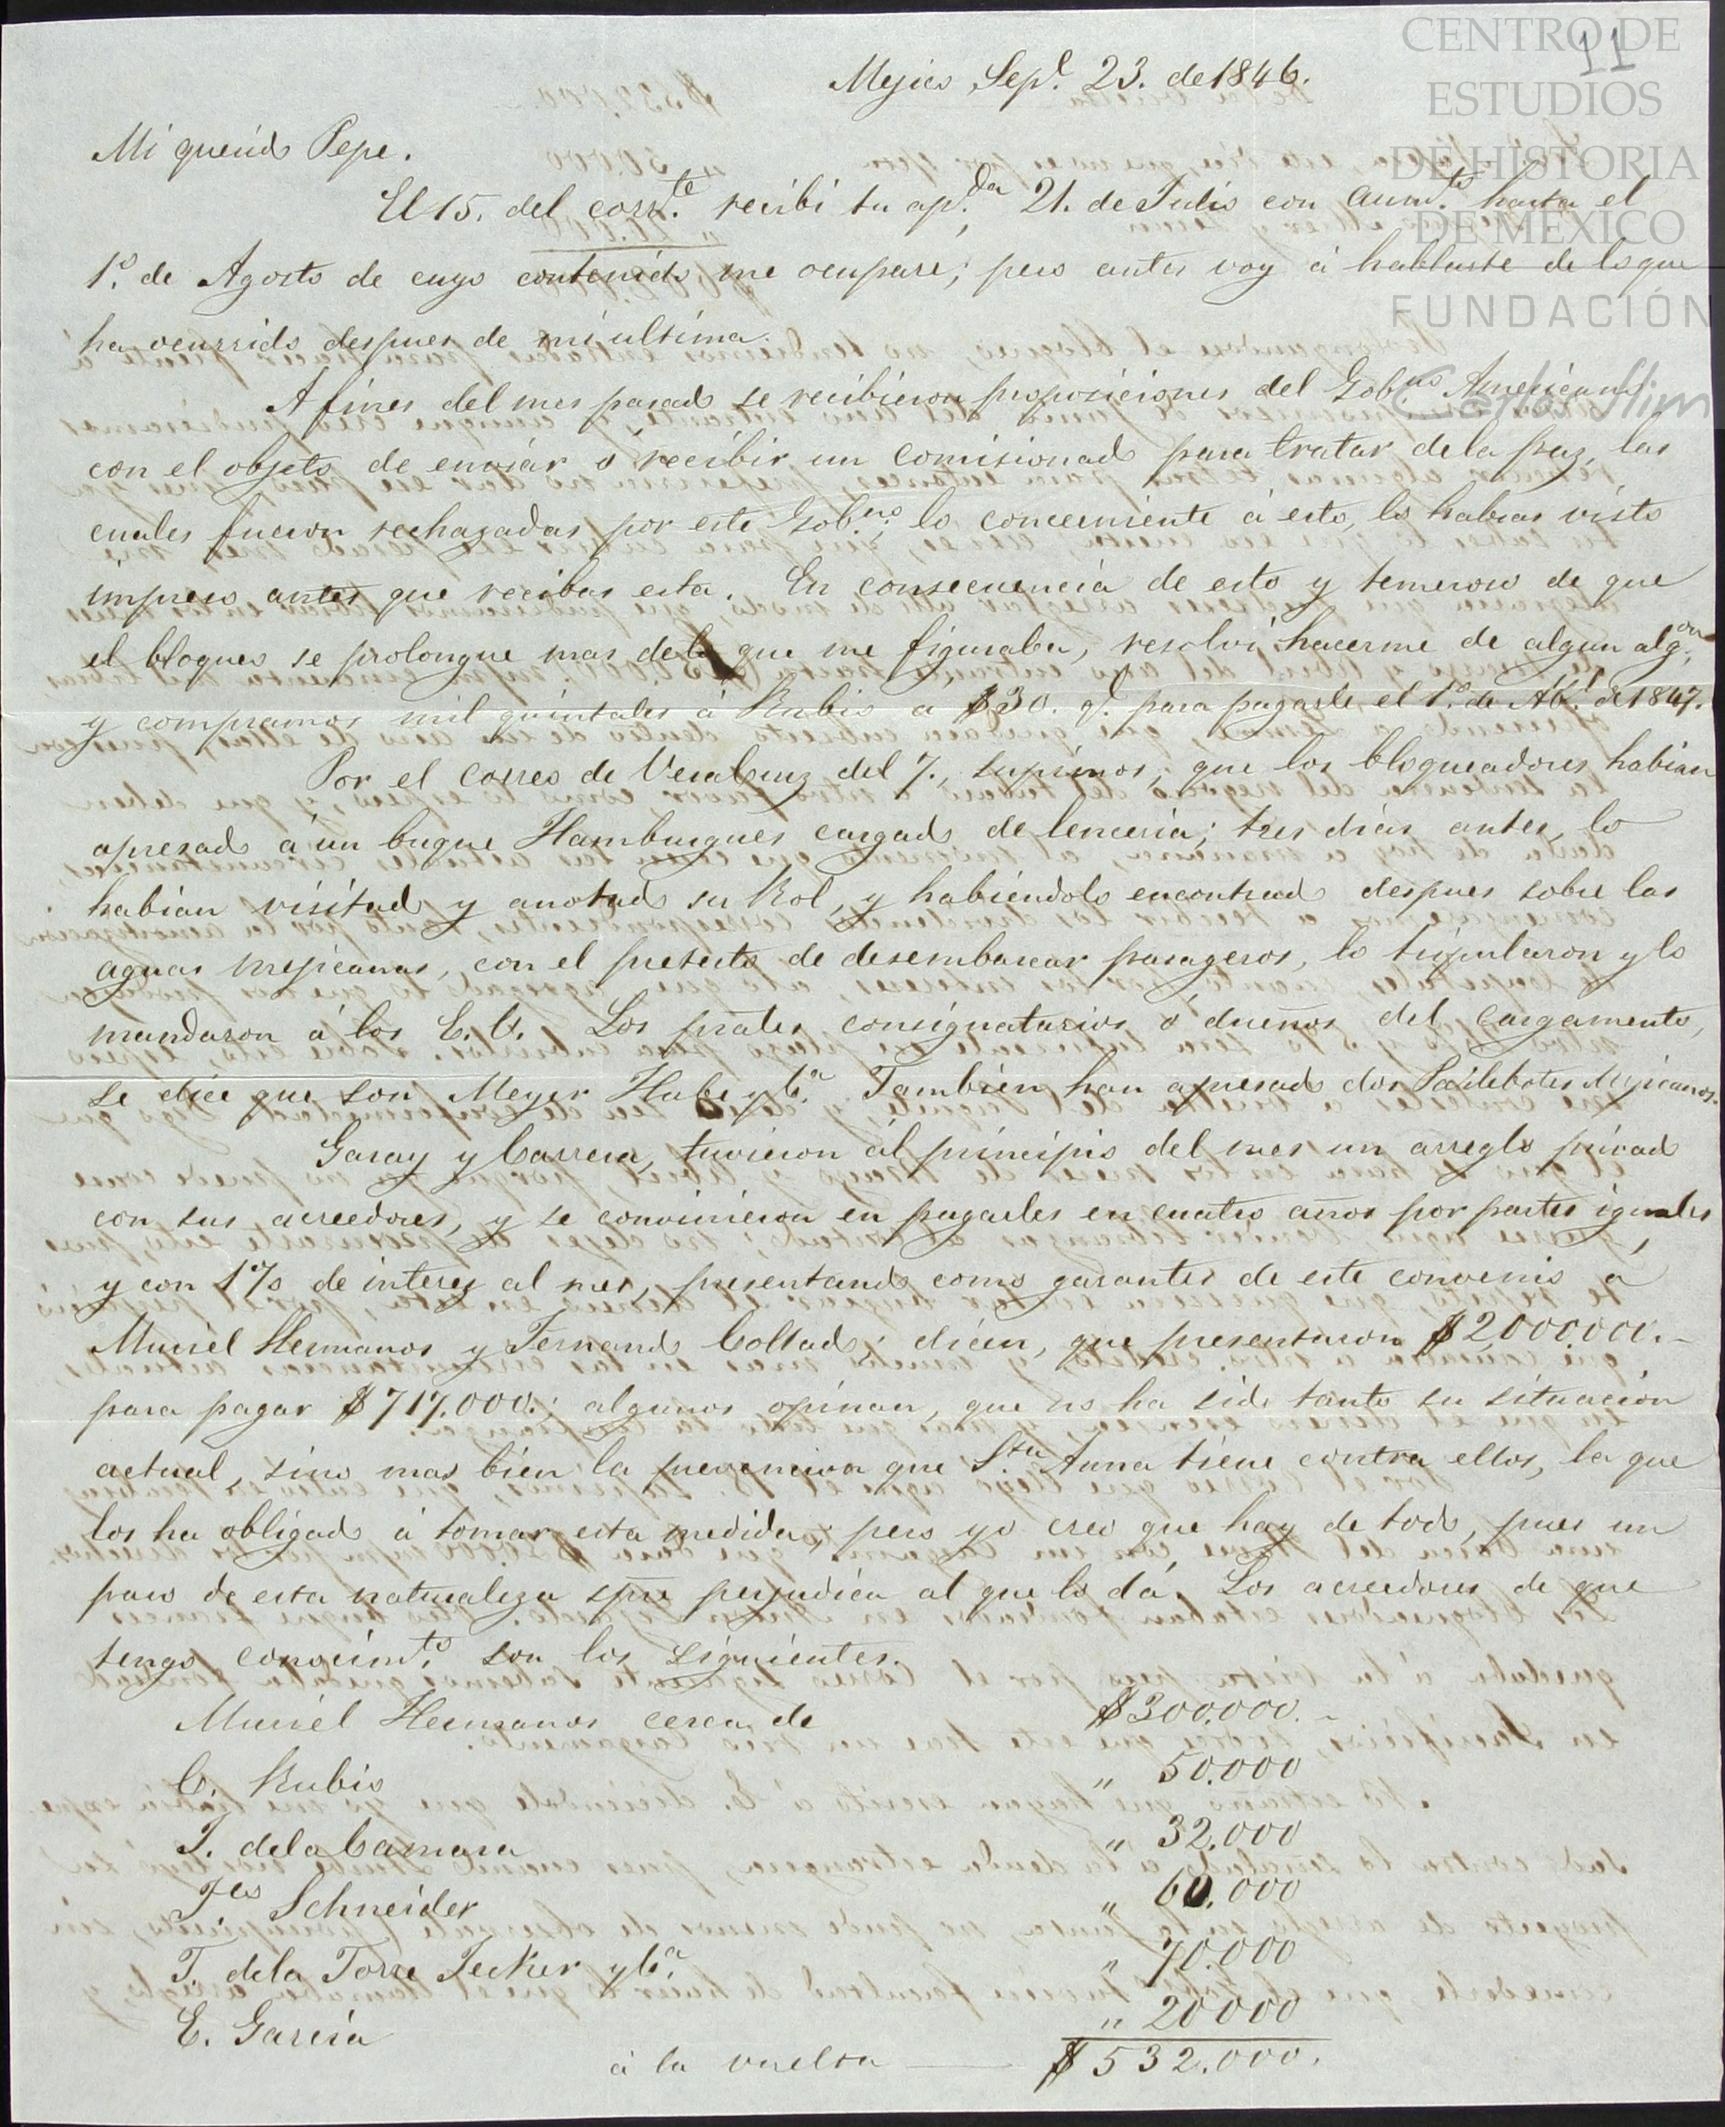 CENTRO DE
ESTUDIOS
DE HISTORIA
DE MÉXICO
FUNDACIÓN
Carlos Slim
11
Mejico Sep.e 23. de 1846.
Mi querido Pepe.
El 15. del corr.te recibi tu ap.da 21. de Julio con aum.to hasta el
1.o de Agosto de cuyo contenido me ocupare; pero antes voy á hablarte de lo que
ha ocurrido despues de mi ultima.
A fines del mes pasado se recibieron proposiciones del Gob.no Americano
con el objeto de enviar ó recibir un comisionado para tratar de la paz, las
cuales fueron rechazadas por este Gob.no; lo concerniente á esto, lo habras visto
impreso antes que recibas esta. En consecuencia de esto y temeroso de que
el bloqueo se prolongue mas de lo que me figuraba, resolvi hacerme de algun alg.on
y compramos mil quintales á Rubio a $30. q.l para pagarle el 1.o de Ab.l de 1847.
Por el correo de Veracruz del 7., supimos, que los bloqueadores habian
apresado á un buque Hamburgues cargado de lenceria; tres dias antes, lo
habian visitado y anotado su Rol, y habiendolo encontrado despues sobre las
aguas mejicanas, con el pretesto de desembarcar pasageros, lo tripularon y lo
mandaron á los E. U. Los prales consignatarios ó dueños del cargamento,
se dice que son Meyer Hube y C.a Tambien han apresado dos Pailebotes Mejicanos.
Garay y Carrera, tuvieron al principio del mes un arreglo privado
con sus acreedores, y se convinieron en pagarles en cuatro años por partes iguales
y con 1% de interez al mes, presentando como garantes de este convenio a
Muriel Hermanos y Fernando Collado: dicen, que presentaron $2,000.000.-
para pagar $717.000.; algunos opinan, que no ha sido tanto su situacion
actual, sino mas bien la prevencion que S.ta Anna tiene contra ellos, la que
los ha obligado á tomar esta medida; pero yo creo que hay de todo, pues un
paso de esta naturaleza spre perjudica al que lo dá. Los acreedores de que
tengo conocim.to son los siguientes.
Muriel Hermanos cerca de $300.000.-
C. Rubio " 50.000
J. de la Camara " 32.000
F.es Schneider " 60.000
T. de la Torre Jecker y C.a " 70.000
E. Garcia " 20000
á la vuelta — $532.000.